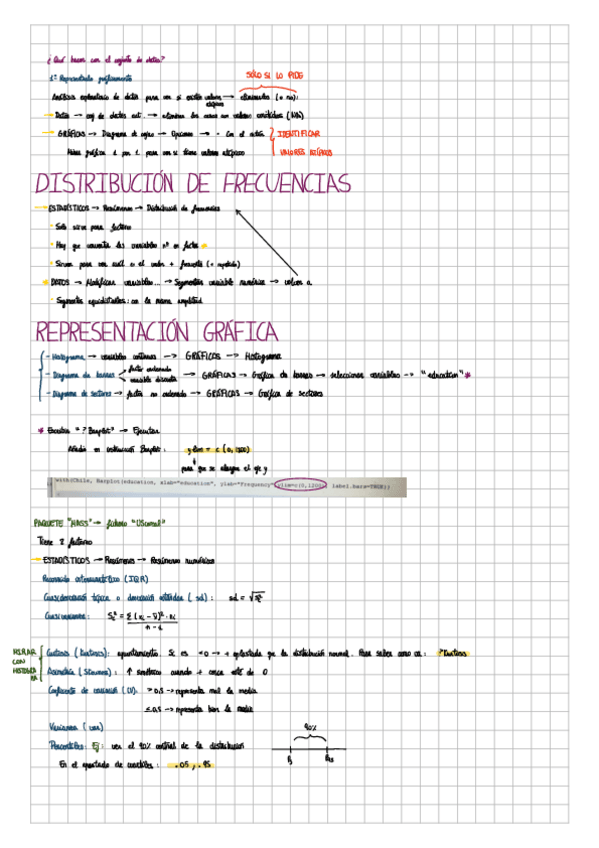 ¿Qué hacer con el conjunto de datos?
1º Representarlo gráficamente
SÓLO SI LO PIDE
Análisis exploratorio de datos para ver si existen valores → eliminarlos (o no):
→ Datos → conj de datos act. → elimina los casos con valores omitidos (NA)
→ GRÁFICAS → Diagrama de cajas → Opciones → · Con el ratón { IDENTIFICAR
Hacer gráfica 1 por 1 para ver si tiene valores atípicos VALORES ATÍPICOS
DISTRIBUCIÓN DE FRECUENCIAS
→ ESTADÍSTICOS → Resúmenes → Distribución de frecuencias
· Solo sirve para factores
· Hay que convertir las variables nº en factor
· Sirven para ver cuál es el valor + frecuente (+ repetido)
→ DATOS → Modificar variables... → Segmentar variable numérica → volver a
· Segmentos equidistantes: con la misma amplitud
REPRESENTACIÓN GRÁFICA
- Histograma → variables continuas → GRÁFICAS → Histograma
- Diagrama de barras → factor ordenado
→ variable discreta → GRÁFICAS → Gráfica de barras → seleccionar variables → "education"*
- Diagrama de sectores → factor no ordenado → GRÁFICAS → Gráfica de sectores
* Escribir "? Barplot" → Ejecutar
Añadir en instrucción Barplot: ylim = c (0, 1200)
para que se alargue el eje y
with(Chile, Barplot(education, xlab="education", ylab="Frequency", ylim=c(0,1200), label.bars=TRUE))
PAQUETE "MASS" → fichero "UScereal"
Tiene 2 factores
→ ESTADÍSTICOS → Resúmenes → Resúmenes numéricos
Recorrido intercuartílico (IQR)
Cuasidesviación típica o desviación estándar (sd): sd = √S²c
Cuasivarianza: S²c = Σ(xi - x̄)² · ni / n - 1
MIRAR CON HISTOGRAMA
Curtosis (Kurtosis): apuntamiento. Si es <0 → + aplastada que la distribución normal. Para saber como va: ?Kurtosis
Asimetría (Skewness): ↑ simétrico cuando + cerca esté de 0
Coeficiente de variación (CV): > 0,5 → representa mal la media
≤ 0,5 → representa bien la media
Varianza (var)
90%
Percentiles: Ej: ver el 90% central de la distribución
P5 P95
En el apartado de cuantiles: .05, .95